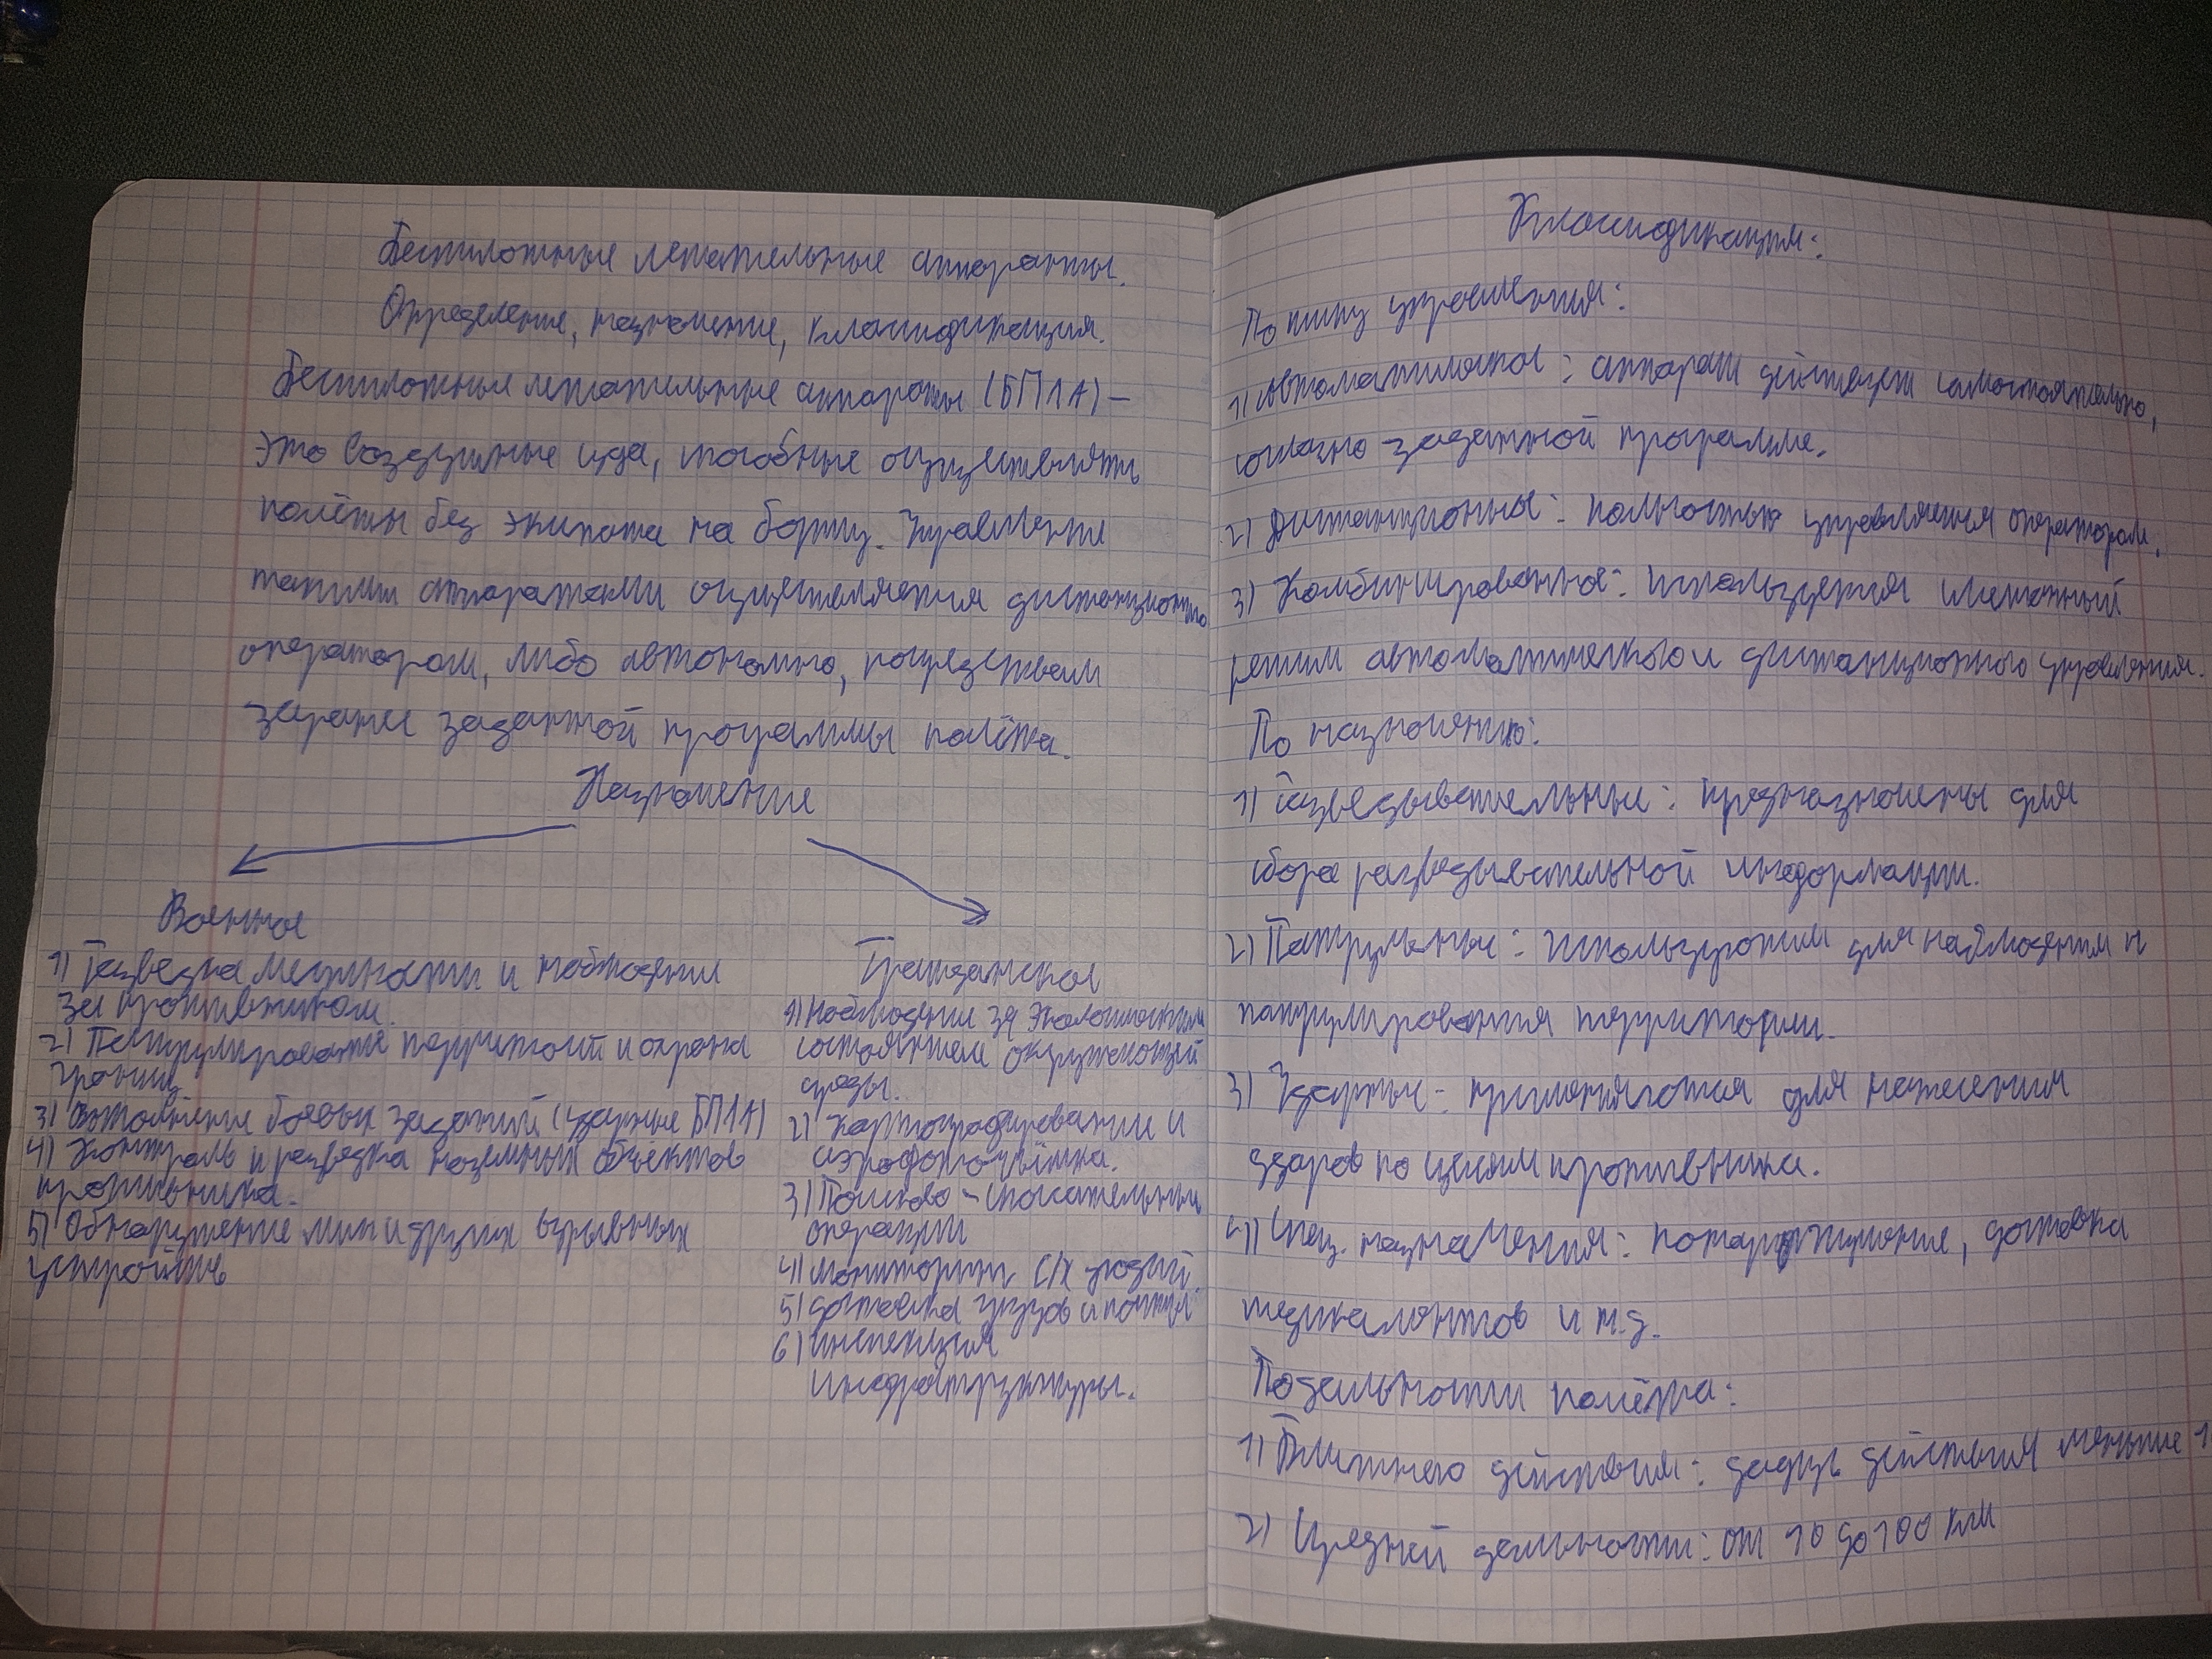 Беспилотные летательные аппараты.
Определение, назначение, классификация.
Беспилотные летательные аппараты (БПЛА) –
это воздушные суда, способные осуществлять
полёты без экипажа на борту. Управление
такими аппаратами осуществляется дистанционно
оператором, либо автономно, посредством
заранее заданной программы полёта.
Назначение
Военное
1) Разведка местности и наблюдение
за противником.
2) Патрулирование территорий и охрана
границ
3) Выполнение боевых заданий (ударные БПЛА)
4) Контроль и разведка наземных объектов
противника.
5) Обнаружение мин и других взрывных
устройств
Гражданское
1) Наблюдение за экологическим
состоянием окружающей
среды.
2) Картографирование и
аэрофотосъёмка.
3) Поисково - спасательные
операции
4) мониторинг с/х угодий.
5) доставка грузов и почты.
6) инспекция
инфраструктуры.
Классификация:
По типу управления:
1) автоматические: аппарат действует самостоятельно,
согласно заданной программе.
2) Дистанционные: полностью управляется оператором.
3) Комбинированные: используется смешанный
режим автоматического и дистанционного управления.
По назначению:
1) Разведывательные: предназначены для
сбора разведывательной информации.
2) Патрульные: используются для наблюдения и
патрулирования территории.
3) Ударные: применяются для нанесения
ударов по целям противника.
4) Спец. назначения: пожаротушение, доставка
медикаментов и т.д.
По дальности полёта:
1) Ближнего действия: действия меньше
2) Средней дальности: от 10 до 100 км